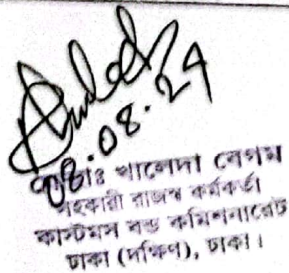 08.08.24
মোছাঃ খালেদা বেগম
সহকারী রাজস্ব কর্মকর্তা
কাস্টমস বন্ড কমিশনারেট
ঢাকা (দক্ষিণ), ঢাকা।